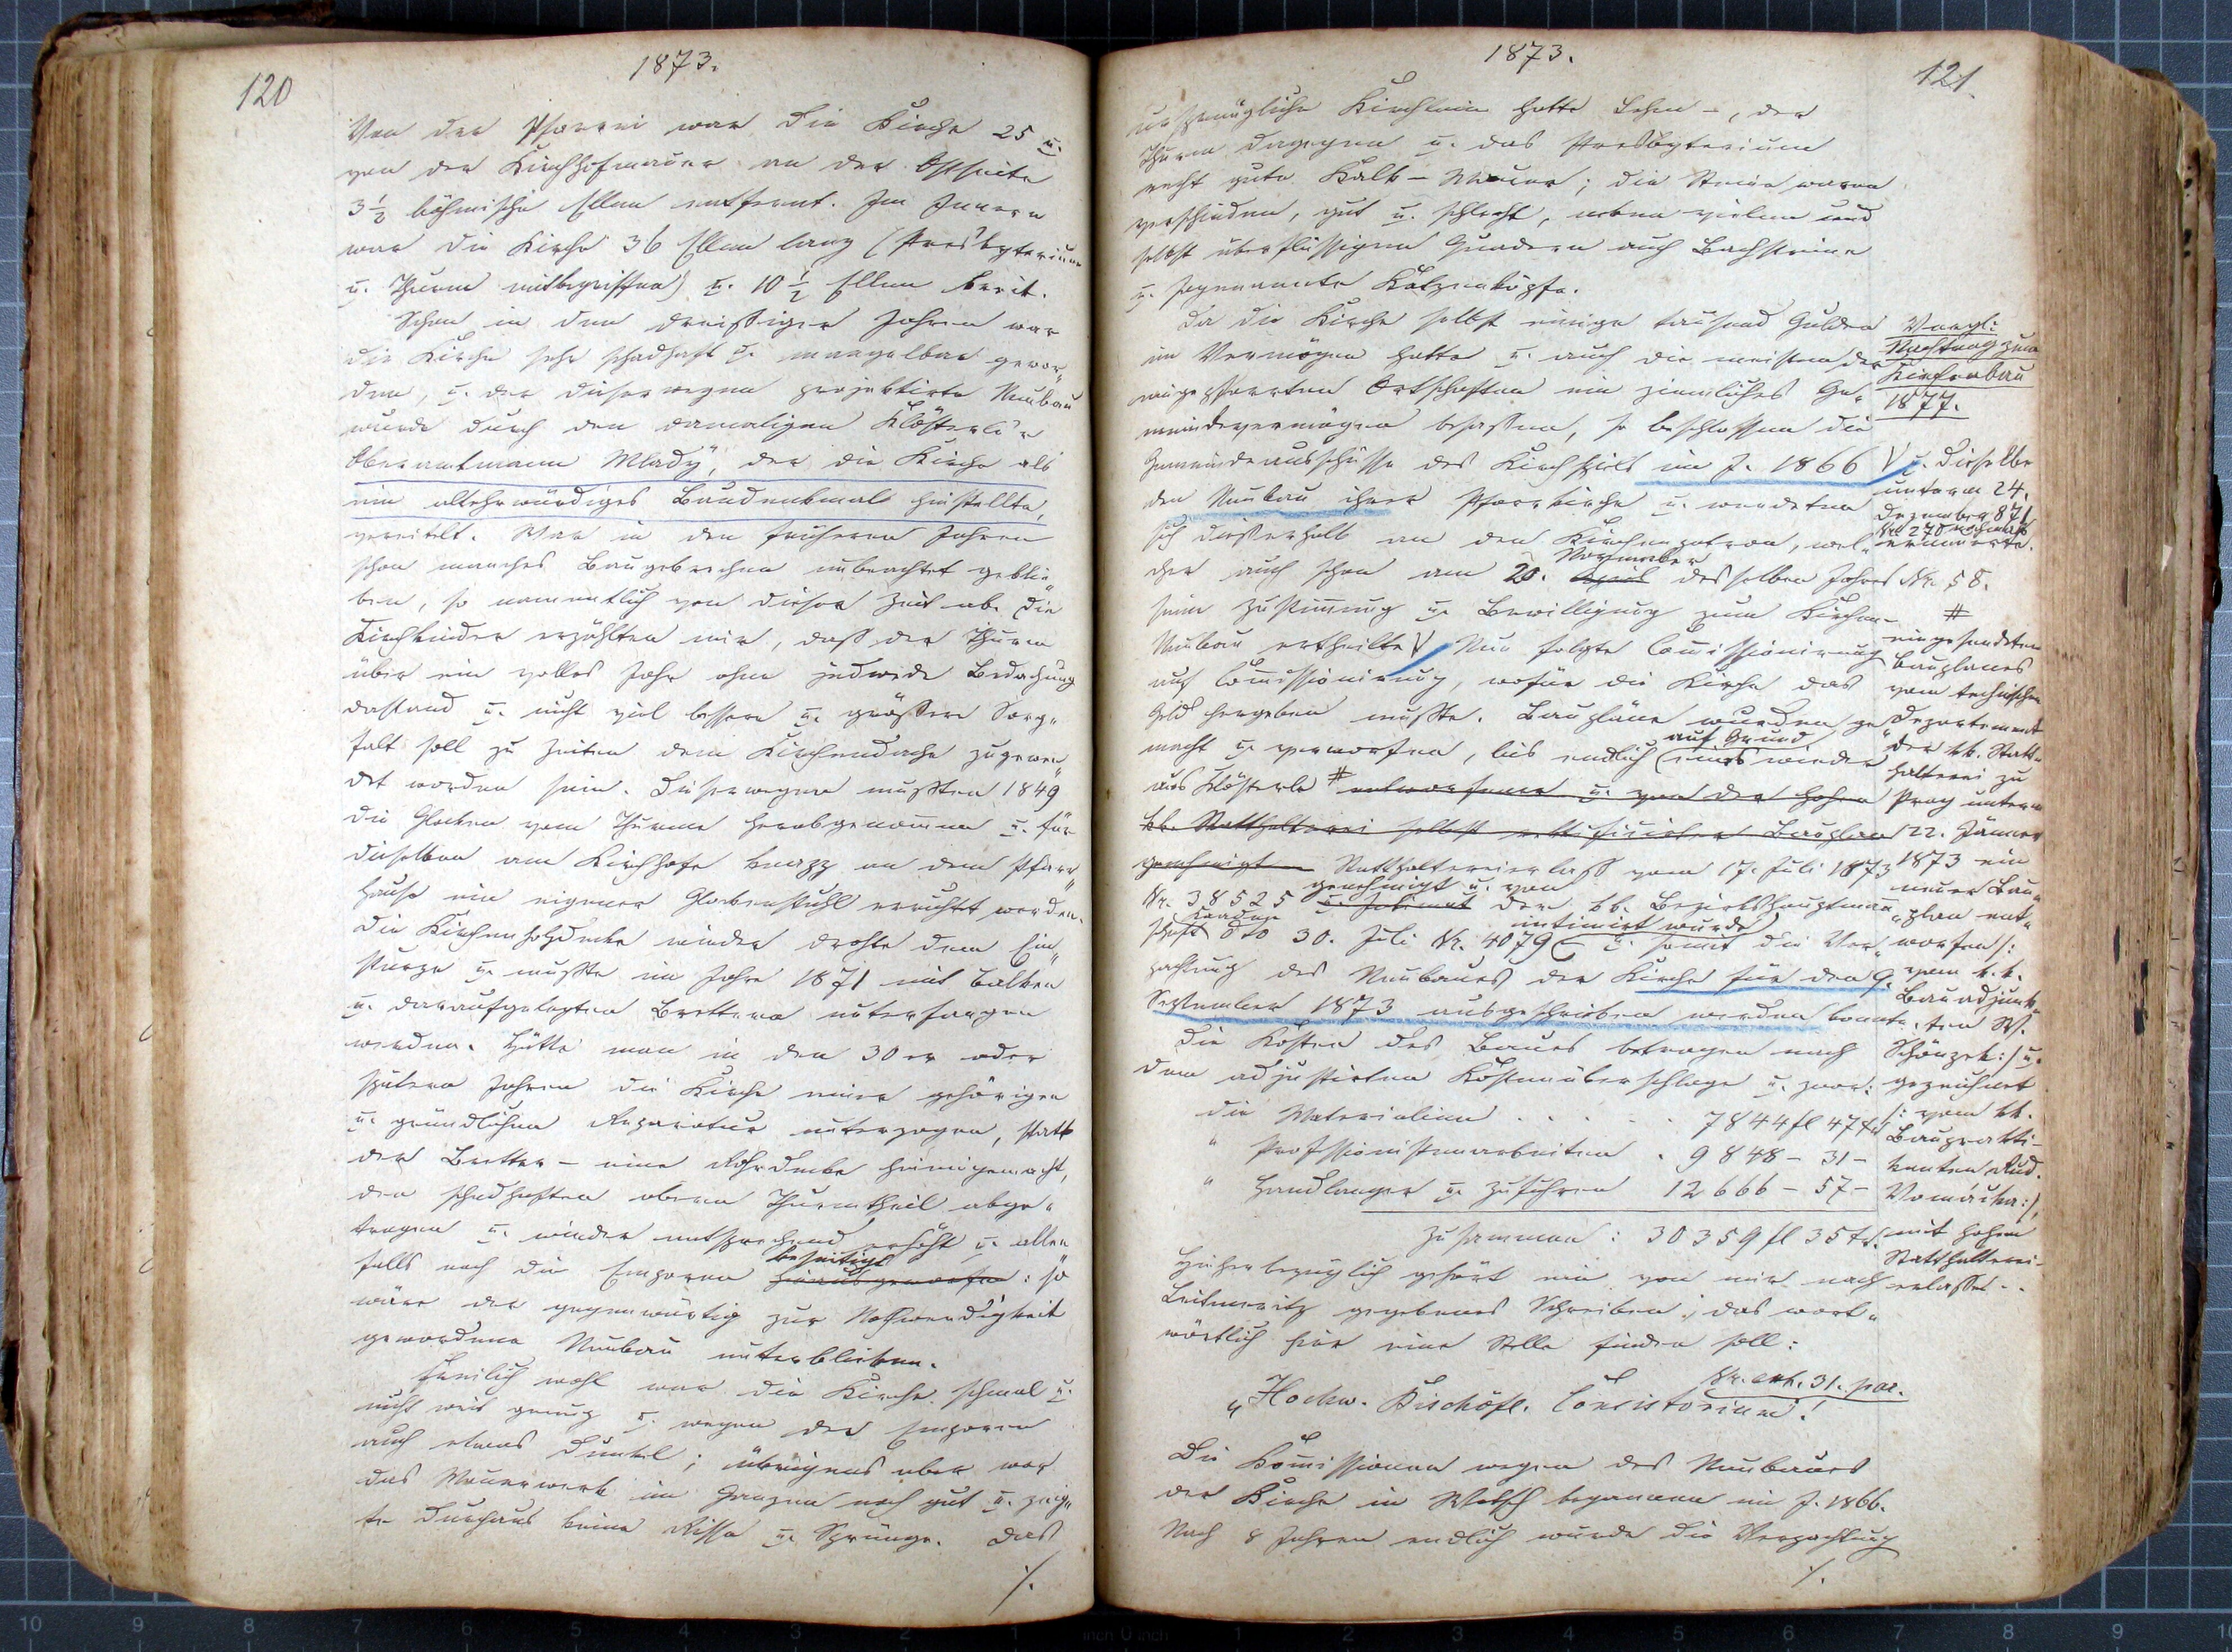 120
1873.
Von der Pfarrei war die Kirche 25 u.
von der Kirchhofmauer an der Ostseite
3 1/2 böhmische Ellen entfernt. Im Innern
war die Kirche 36 Ellen lang (Presbyterium
u. Thurm mitbegriffen) u. 10 1/2 Ellen breit.
Schon in den dreißiger Jahren war
die Kirche sehr schadhaft u. mangelbar gewor„
den, u. der dieserwegen projektirte Neubau
wurde durch den damaligen Klösterle'r
Oberamtmann Mlady, der die Kirche als
ein altehrwürdiges Baudenkmal hinstellte,
vereitelt. War in den früheren Jahren
schon manches Baugebrechen unbeachtet geblie„
ben, so namentlich von dieser Zeit ab. Die
Kirchkinder erzählten mir, daß der Thurm
über ein volles Jahr ohne jedwede Bedachung
dastand u. nicht viel bessere u. größere Sorg„
falt soll zu Zeiten dem Kirchendache zugewen„
det worden sein. Dieserwegen mußten 1849
die Glocken vom Thurme herabgenommen u. für
dieselben am Kirchhofe knapp an dem Pfarr„
hause ein eigener Glockenstuhl errichtet werden.
Die Kirchenholzdecke wieder drohte dem Ein„
sturze u. mußte im Jahre 1871 mit Balken
u. daraufgelegten Brettern unterfangen
werden. Hätte man in den 30er oder
spätern Jahren die Kirche einer gehörigen
u. gründlichen Reparatur unterzogen, statt
der Bretter – eine Rohrdecke hineingemacht,
den schadhaften obern Thurmtheil abge„
tragen u. wieder entsprechend erhöht u. allen„
falls noch die Emporen hinausgeworfen beseitigt : so
wäre der gegenwärtig zur Nothwendigkeit
gewordene Neubau unterblieben.
Freilich wohl war die Kirche schmal u.
nicht weit genug u. wegen der Emporen
auch etwas dunkel; übrigens aber war
das Mauerwerk im Ganzen noch gut u. zeig„
te durchaus keine Risse u. Sprünge. Das
./.
1873.
121.
ursprüngliche Kirchlein hatte Lehm –, der
Thurm dagegen u. das Presbyterium
recht gute Kalk – Mauer; die Steine waren
verschieden, gut u. schlecht, neben vielen und
selbst überflüssigen Quadern auch Bachsteine
u. sogenannte Katzenköpfe.
Da die Kirche selbst einige tausend Gulden
im Vermögen hatte u. auch die meisten der
eingepfarrten Ortschaften ein ziemliches Ge„
meindevermögen besaßen, so beschlossen die
Gemeindeausschüsse des Kirchspiels im J. 1866
den Neubau ihrer Pfarrkirche u. wendeten
sich dießerhalb an den Kirchenpatron, wel„
cher auch schon am 20. April November desselben Jahres
seine Zustimmung u. Bewilligung zum Kirchen–
Neubau ertheilte V Nun folgte Commissionirung
auf Commissionirung, wofür die Kirche das
Geld hergeben mußte. Baupläne wurden ge„
macht u. verworfen, bis endlich auf Grund eines wieder
aus Klösterle # entworfener u. von der hohen
kk. Statthalterei selbst rektificirter Bauplan
genehmigt Statthaltereierlaß vom 17. Juli 1873
Nr. 38525 genehmigt u. von der kk. Bezirkshauptmann„
schaft Kaaden dto 30. Juli Nr. 4079 intimirt wurde u. somit die Ver„
pachtung des Neubaues der Kirche für den 9.
September 1873 ausgeschrieben werden konnte.
Die Kosten des Baues betragen nach
dem adjustirten Kostenüberschlage u. zwar:
die Materialien . . . . . 7844 fl 47 xr
" Professionistenarbeiten . 9848 – 31 –
" Handlanger u. Zufuhren 12666 – 57 –
Zusammen : 30359 fl 35 xr.
Hieherbezüglich gehört ein von mir nach
Leitmeritz gegebenes Schreiben, das wort„
wörtlich hier eine Stelle finden soll:
Nr. exh. 31. par.
„Hochw. Bischöfl. Consistorium!
Die Kommissionen wegen des Neubaues
der Kirche in Wotsch begannen im J. 1866.
Nach 8 Jahren endlich wurde die Verpachtung
./.
Vergl:
Nachtrag zum
Kirchenbau
1877.
V u. dieselbe
unterm 24.
Dezember 871
Nr 270 nochmals
erneuerte.
Nr. 58.
#
eingesendeten
Bauplanes
vom technischen
Departement
der kk. Statt„
halterei zu
Prag unterm
22. Jänner
1873 ein
neuer Bau„
plan ent„
worfen /:
vom k.k.
Bauadjunk„
ten W.
:/ u.
gezeichnet
/: vom kk.
Bauprakti–
kanten Rud.
Vomácka :/,
mit hohem
Statthalterei–
erlasse . .